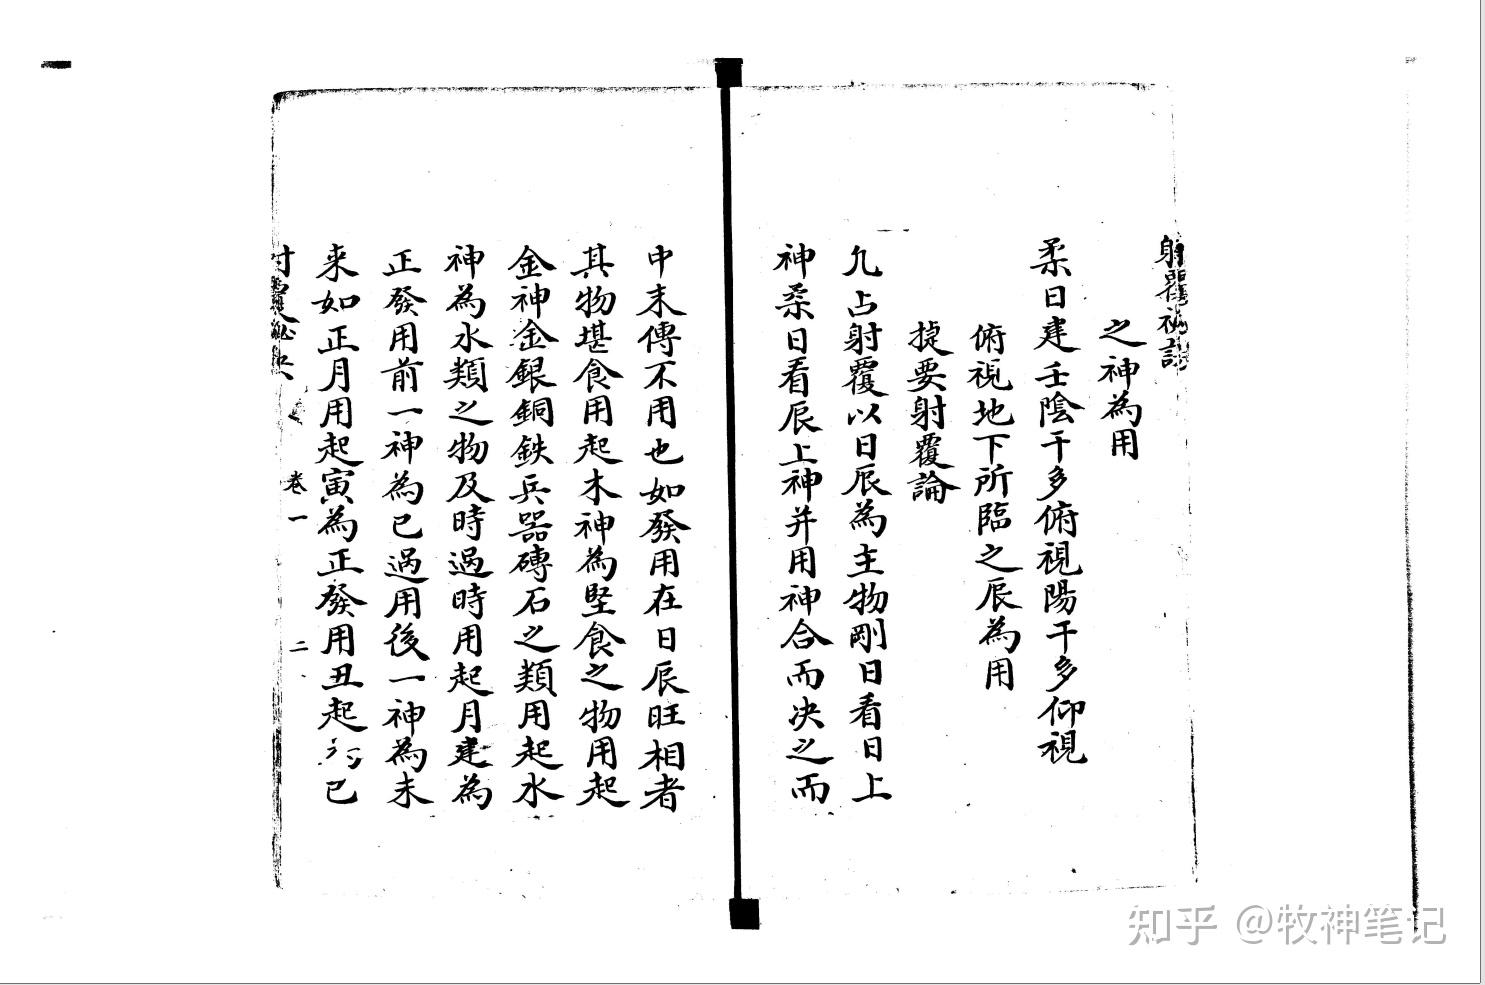 射覆秘訣
之神為用
柔日建壬陰干多俯視陽干多仰視
俯視地下所臨之辰為用
捷要射覆論
凡占射覆以日辰為主物剛日看日上
神柔日看辰上神并用神合而决之而
中末傳不用也如發用在日辰旺相者
其物堪食用起木神為堅食之物用起
金神金銀銅鉄兵器磚石之類用起水
神為水類之物及時過時用起月建為
正發用前一神為已過用後一神為未
来如正月用起寅為正發用丑起 已
射覆秘决 卷一 二
知乎 @牧神笔记